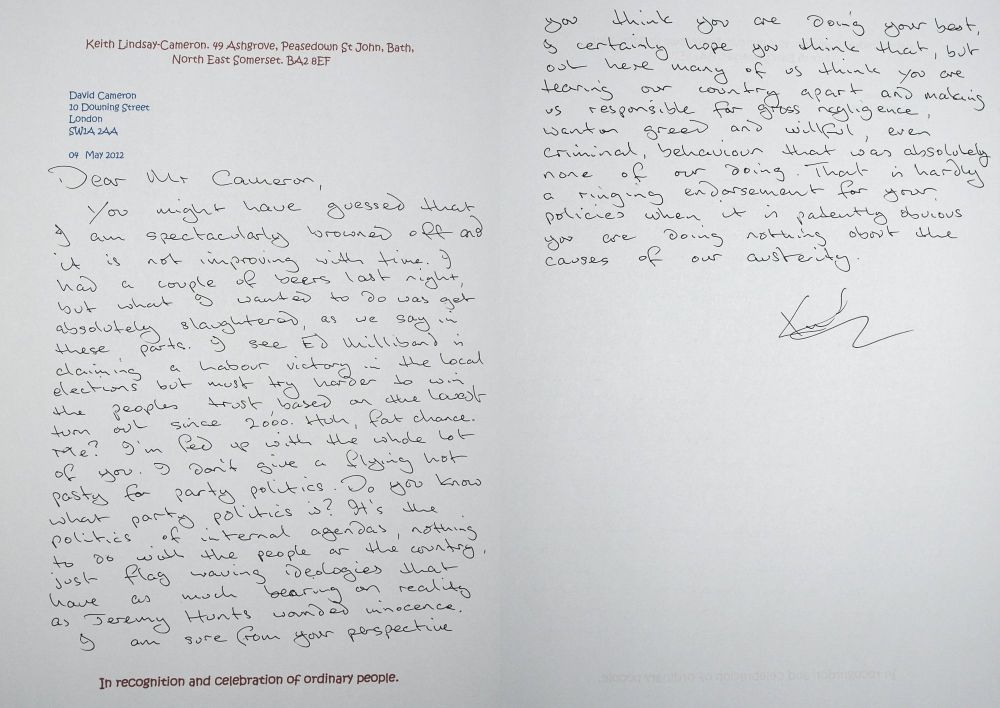 Keith Lindsay-Cameron. 49 Ashgrove, Peasedown St John, Bath,
North East Somerset. BA2 8EF
David Cameron
10 Downing Street
London
SW1A 2AA
04 May 2012
Dear Mr Cameron,
You might have guessed that
I am spectacularly browned off and
it is not improving with time. I
had a couple of beers last night,
but what I wanted to do was get
absolutely slaughtered, as we say in
these parts. I see Ed Milliband is
claiming a Labour victory in the local
elections but must try harder to win
the peoples trust based on the lowest
turn out since 2000. Huh, fat chance.
Me? I'm fed up with the whole lot
of you. I don't give a flying hot
pasty for party politics. Do you know
what party politics is? It's the
politics of internal agendas, nothing
to do with the people or the country,
just flag waving ideologies that
have as much bearing on reality
as Jeremy Hunts wounded innocence.
I am sure from your perspective
In recognition and celebration of ordinary people.
you think you are doing your best,
I certainly hope you think that, but
out here many of us think you are
tearing our country apart and making
us responsible for gross negligence,
wanton greed and willful, even
criminal, behaviour that was absolutely
none of our doing. That is hardly
a ringing endorsement for your
policies when it is patently obvious
you are doing nothing about the
causes of our austerity.